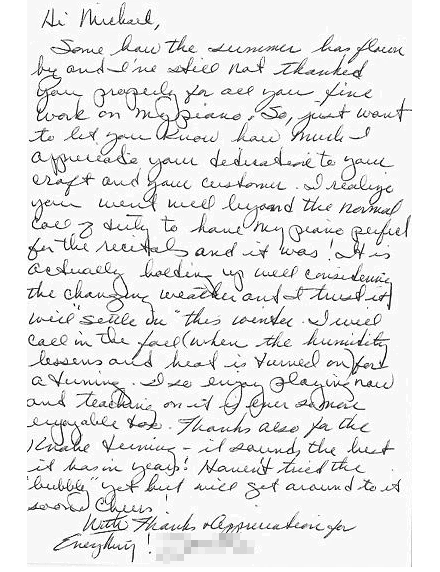 Hi Michael,
Some how the summer has flown
by and I've still not thanked
you properly for all your fine
work on my piano. So, just want
to let you know how much I
appreciate your dedication to your
craft and your customer. I realize
you went well beyond the normal
call of duty to have my piano perfect
for the recitals and it was! It is
actually holding up well considering
the changing weather and I trust it
will "settle in" this winter. I will
call in the fall (when the humidity
lessens and heat is turned on) for
a tuning. I so enjoy playing now
and teaching on it is ever so more
enjoyable too. Thanks also for the
Knabe tuning - it sounds the best
it has in years! Haven't tried the
"bubble" yet but will get around to it
soon! Cheers!
With Thanks & Appreciation for
Everything!